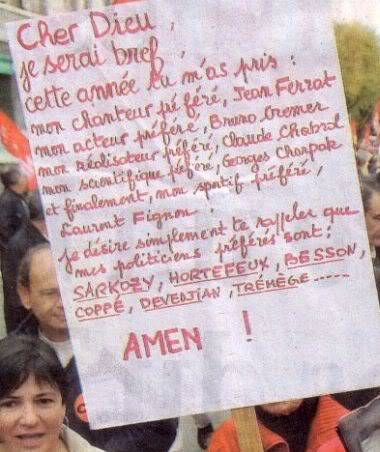 Cher Dieu,
je serai bref,
cette année tu m'as pris :
mon chanteur préféré, Jean Ferrat
mon acteur préféré, Bruno Cremer
mon réalisateur préféré, Claude Chabrol
mon scientifique préféré, Georges Charpak
et finalement, mon sportif préféré,
Laurent Fignon.
je désire simplement te rappeler que
mes politiciens préférés sont :
SARKOZY, HORTEFEUX, BESSON,
COPPÉ, DEVEDJIAN, TRÉMÈGE.....
AMEN !